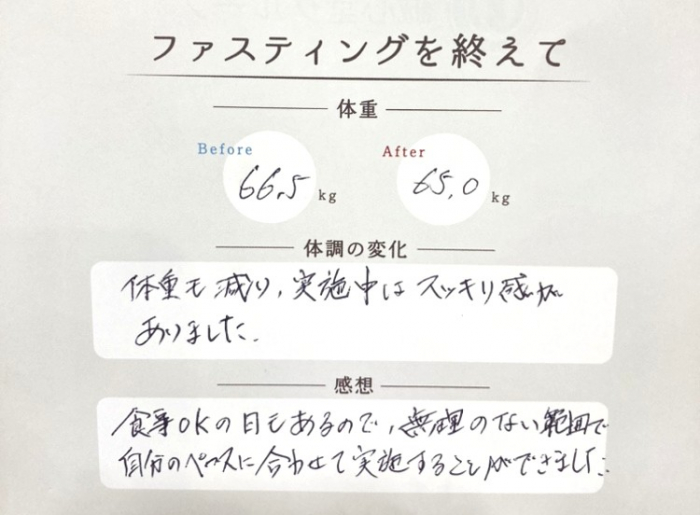 ファスティングを終えて
体重
Before
After
66.5 kg
65.0 kg
体調の変化
体重も減り、実施中はスッキリ感が
ありました。
感想
食事OKの日もあるので、無理のない範囲で
自分のペースに合わせて実施することができました。